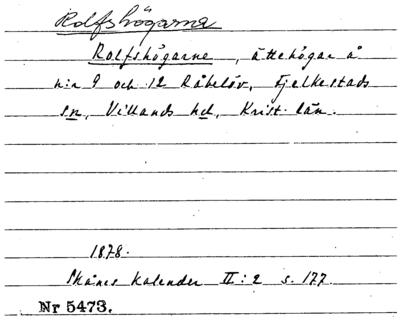 Rolfshögarna
Rolfshögarne, ättehögar å
n:r 9 och 12 Råbelöv, Fjelkestads
sn, Villands hd, Krist. län.
1878.
Skånes Kalender II:2 s. 177
Nr 5473.